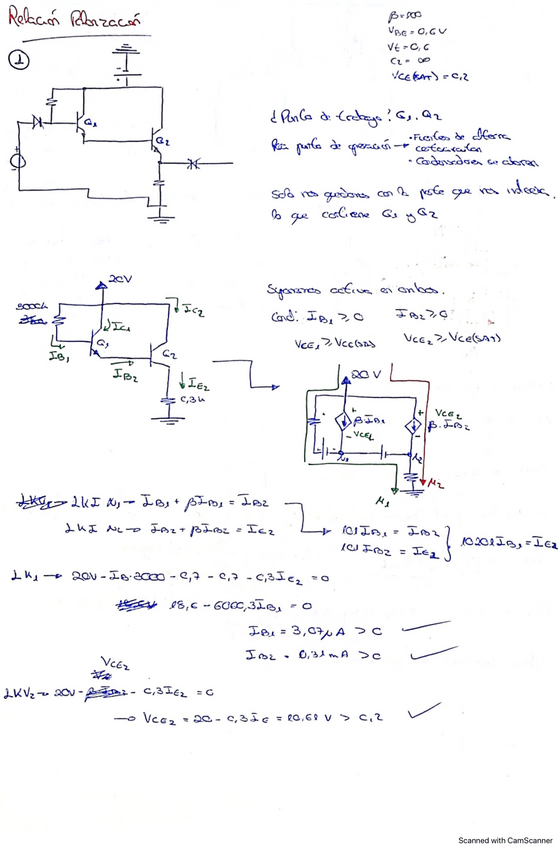 Relación Polarización
β=100
VBE = 0,6V
Vt = 0,6
C2 = ∞
VCE(SAT) = 0,2
1
Q1
Q2
¿Punto de trabajo? Q1, Q2
Para punto de operación → • Fuentes de alterna
cortocircuitan
• Condensadores se abren
Solo nos quedamos con la parte que nos interesa,
lo que contiene Q1 y Q2
20V
IC2
IC1
IB1
Q1
Q2
IB2
IE2
0,3k
Suponemos activa en ambos.
Cond: IB1 ≥ 0 IB2 ≥ 0
VCE1 ≥ VCE(SAT) VCE2 ≥ VCE(SAT)
20V
βIB1
VCE1
VCE2
β·IB2
N1
N2
M1
M2
LKI N1 → IB1 + βIB1 = IB2
LKI N2 → IB2 + βIB2 = IE2
101IB1 = IB2
101IB2 = IE2
10201IB1 = IE2
LK1 → 20V - IB·3000 - 0,7 - 0,7 - 0,3IE2 = 0
18,6 - 6060,3IB1 = 0
IB1 = 3,07μA > 0
IB2 = 0,31mA > 0
VCE2
LKV2 → 20V - - 0,3IE2 = 0
→ VCE2 = 20 - 0,3IE = 10,61V > 0,2
Scanned with CamScanner